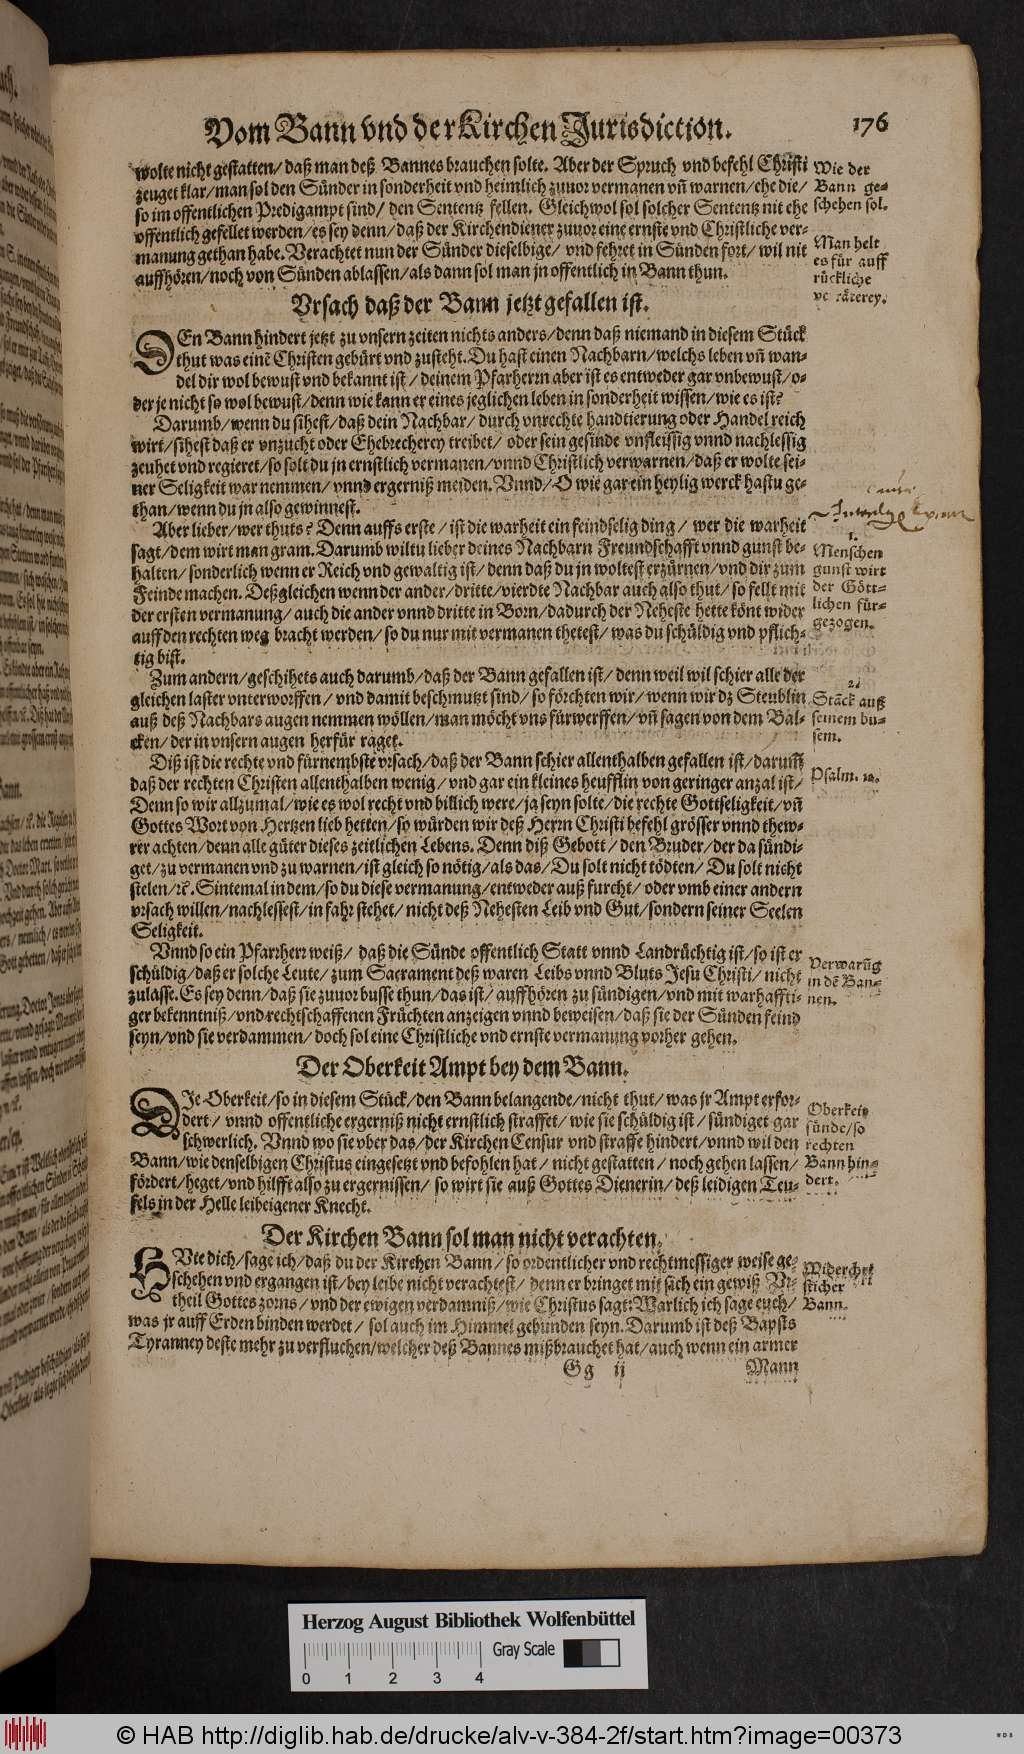 Vom Bann vnd der Kirchen Jurisdiction. 176
wolte nicht gestatten/ daß man deß Bannes brauchen solte. Aber der Spruch vnd befehl Christi
zeuget klar/ man sol den Sünder in sonderheit vnd heimlich zuuor vermanen vñ warnen/ ehe die/
so im offentlichen Predigampt sind/ den Sententz fellen. Gleichwol sol solcher Sententz nit ehe
offentlich gefellet werden/ es sey denn/ daß der Kirchendiener zuuor eine ernste vnd Christliche ver-
manung gethan habe. Verachtet nun der Sünder dieselbige/ vnd fehret in Sünden fort/ wil nit
auffhören/ noch von Sünden ablassen/ als dann sol man jn offentlich in Bann thun.
Wie der
Bann ge-
schehen sol.
Man helt
es für auff
rückliche
Vrsach daß der Bann jetzt gefallen ist.
DEn Bann hindert jetzt zu vnsern zeiten nichts anders/ denn daß niemand in diesem Stück
thut was einē Christen gebürt vnd zusteht. Du hast einen Nachbarn/ welchs leben vñ wan-
del dir wol bewust vnd bekannt ist/ deinem Pfarherrn aber ist es entweder gar vnbewust/ o-
der je nicht so wol bewust/ denn wie kann er eines jeglichen leben in sonderheit wissen/ wie es ist?
Darumb/ wenn du sihest/ daß dein Nachbar/ durch vnrechte handtierung oder Handel reich
wirt/ sihest daß er vnzucht oder Ehebrecherey treibet/ oder sein gesinde vnfleissig vnnd nachlessig
zeuhet vnd regieret/ so solt du jn ernstlich vermanen/ vnnd Christlich verwarnen/ daß er wolte sei-
ner Seligkeit war nemmen/ vnnd ergerniß meiden. Vnnd/ O wie gar ein heylig werck hastu ge-
than/ wenn du jn also gewinnest.
Aber lieber/ wer thuts? Denn auffs erste/ ist die warheit ein feindselig ding/ wer die warheit
sagt/ dem wirt man gram. Darumb wiltu lieber deines Nachbarn Freundschafft vnnd gunst be-
halten/ sonderlich wenn er Reich vnd gewaltig ist/ denn daß du jn woltest erzürnen/ vnd dir zum
Feinde machen. Deßgleichen wenn der ander/ dritte/ vierdte Nachbar auch also thut/ so fellt mit
der ersten vermanung/ auch die ander vnnd dritte in Born/ dadurch der Neheste hette könt wider
auff den rechten weg bracht werden/ so du nur mit vermanen thetest/ was du schüldig vnd pflich-
tig bist.
1.
Menschen
gunst wirt
der Gött-
lichen für-
gezogen.
Zum andern/ geschihets auch darumb/ daß der Bann gefallen ist/ denn weil wil schier alle der
gleichen laster vnterworffen/ vnd damit beschmutzt sind/ so förchten wir/ wenn wir dz Steublin
auß deß Nachbars augen nemmen wöllen/ man möcht vns fürwerffen/ vñ sagen von dem Bal-
cken/ der in vnsern augen herfür raget.
2.
Stāck auß
seinem bu-
sem.
Diß ist die rechte vnd fürnembste vrsach/ daß der Bann schier allenthalben gefallen ist/ darumb
daß der rechten Christen allenthalben wenig/ vnd gar ein kleines heufflin von geringer anzal ist/
Denn so wir allzumal/ wie es wol recht vnd billich were/ ja seyn solte/ die rechte Gottseligkeit/ vñ
Gottes Wort von Hertzen lieb hetten/ so würden wir deß Herrn Christi befehl grösser vnnd thew-
rer achten/ denn alle güter dieses zeitlichen Lebens. Denn diß Gebott/ den Bruder/ der da sündi-
get/ zu vermanen vnd zu warnen/ ist gleich so nötig/ als das/ Du solt nicht tödten/ Du solt nicht
stelen/ ꝛc. Sintemal in dem/ so du diese vermanung/ entweder auß furcht/ oder vmb einer andern
vrsach willen/ nachlessest/ in fahr stehet/ nicht deß Nehesten Leib vnd Gut/ sondern seiner Seelen
Seligkeit.
Psalm. 12.
Vnnd so ein Pfarherr weiß/ daß die Sünde offentlich Statt vnnd Landrüchtig ist/ so ist er
schüldig/ daß er solche Leute/ zum Sacrament deß waren Leibs vnnd Bluts Jesu Christi/ nicht
zulasse. Es sey denn/ daß sie zuuor busse thun/ das ist/ auffhören zu sündigen/ vnd mit warhaffti-
ger bekenntniß/ vnd rechtschaffenen Früchten anzeigen vnnd beweisen/ daß sie der Sünden feind
seyn/ vnd sie verdammen/ doch sol eine Christliche vnd ernste vermanung vorher gehen.
Verwarūg
in dē Ban-
nen.
Der Oberkeit Ampt bey dem Bann.
DIe Oberkeit/ so in diesem Stück/ den Bann belangende/ nicht thut/ was jr Ampt erfor-
dert/ vnnd offentliche ergerniß nicht ernstlich straffet/ wie sie schüldig ist/ sündiget gar
schwerlich. Vnnd wo sie vber das/ der Kirchen Censur vnd straffe hindert/ vnnd wil den
Bann/ wie denselbigen Christus eingesetzt vnd befohlen hat/ nicht gestatten/ noch gehen lassen/
fördert/ heget/ vnd hilfft also zu ergernissen/ so wirt sie auß Gottes Dienerin/ deß leidigen Teu-
fels in der Helle leibeigener Knecht.
Oberkeit
sünde/ so
rechten
Bann hin-
dert.
Der Kirchen Bann sol man nicht verachten.
HVte dich/ sage ich/ daß du der Kirchen Bann/ so ordentlicher vnd rechtmessiger weise ge-
schehen vnd ergangen ist/ bey leibe nicht verachtest/ denn er bringet mit sich ein gewiß Vr-
theil Gottes zorns/ vnd der ewigen verdamniß/ wie Christus sagt: Warlich ich sage euch/
was jr auff Erden binden werdet/ sol auch im Himmel gebunden seyn. Darumb ist deß Bapsts
Tyranney deste mehr zu verfluchen/ welcher deß Bannes mißbrauchet hat/ auch wenn ein armer
Widerchri-
sticher
Bann.
Gg ij Mann
Herzog August Bibliothek Wolfenbüttel
Gray Scale
0 1 2 3 4
© HAB http://diglib.hab.de/drucke/alv-v-384-2f/start.htm?image=00373